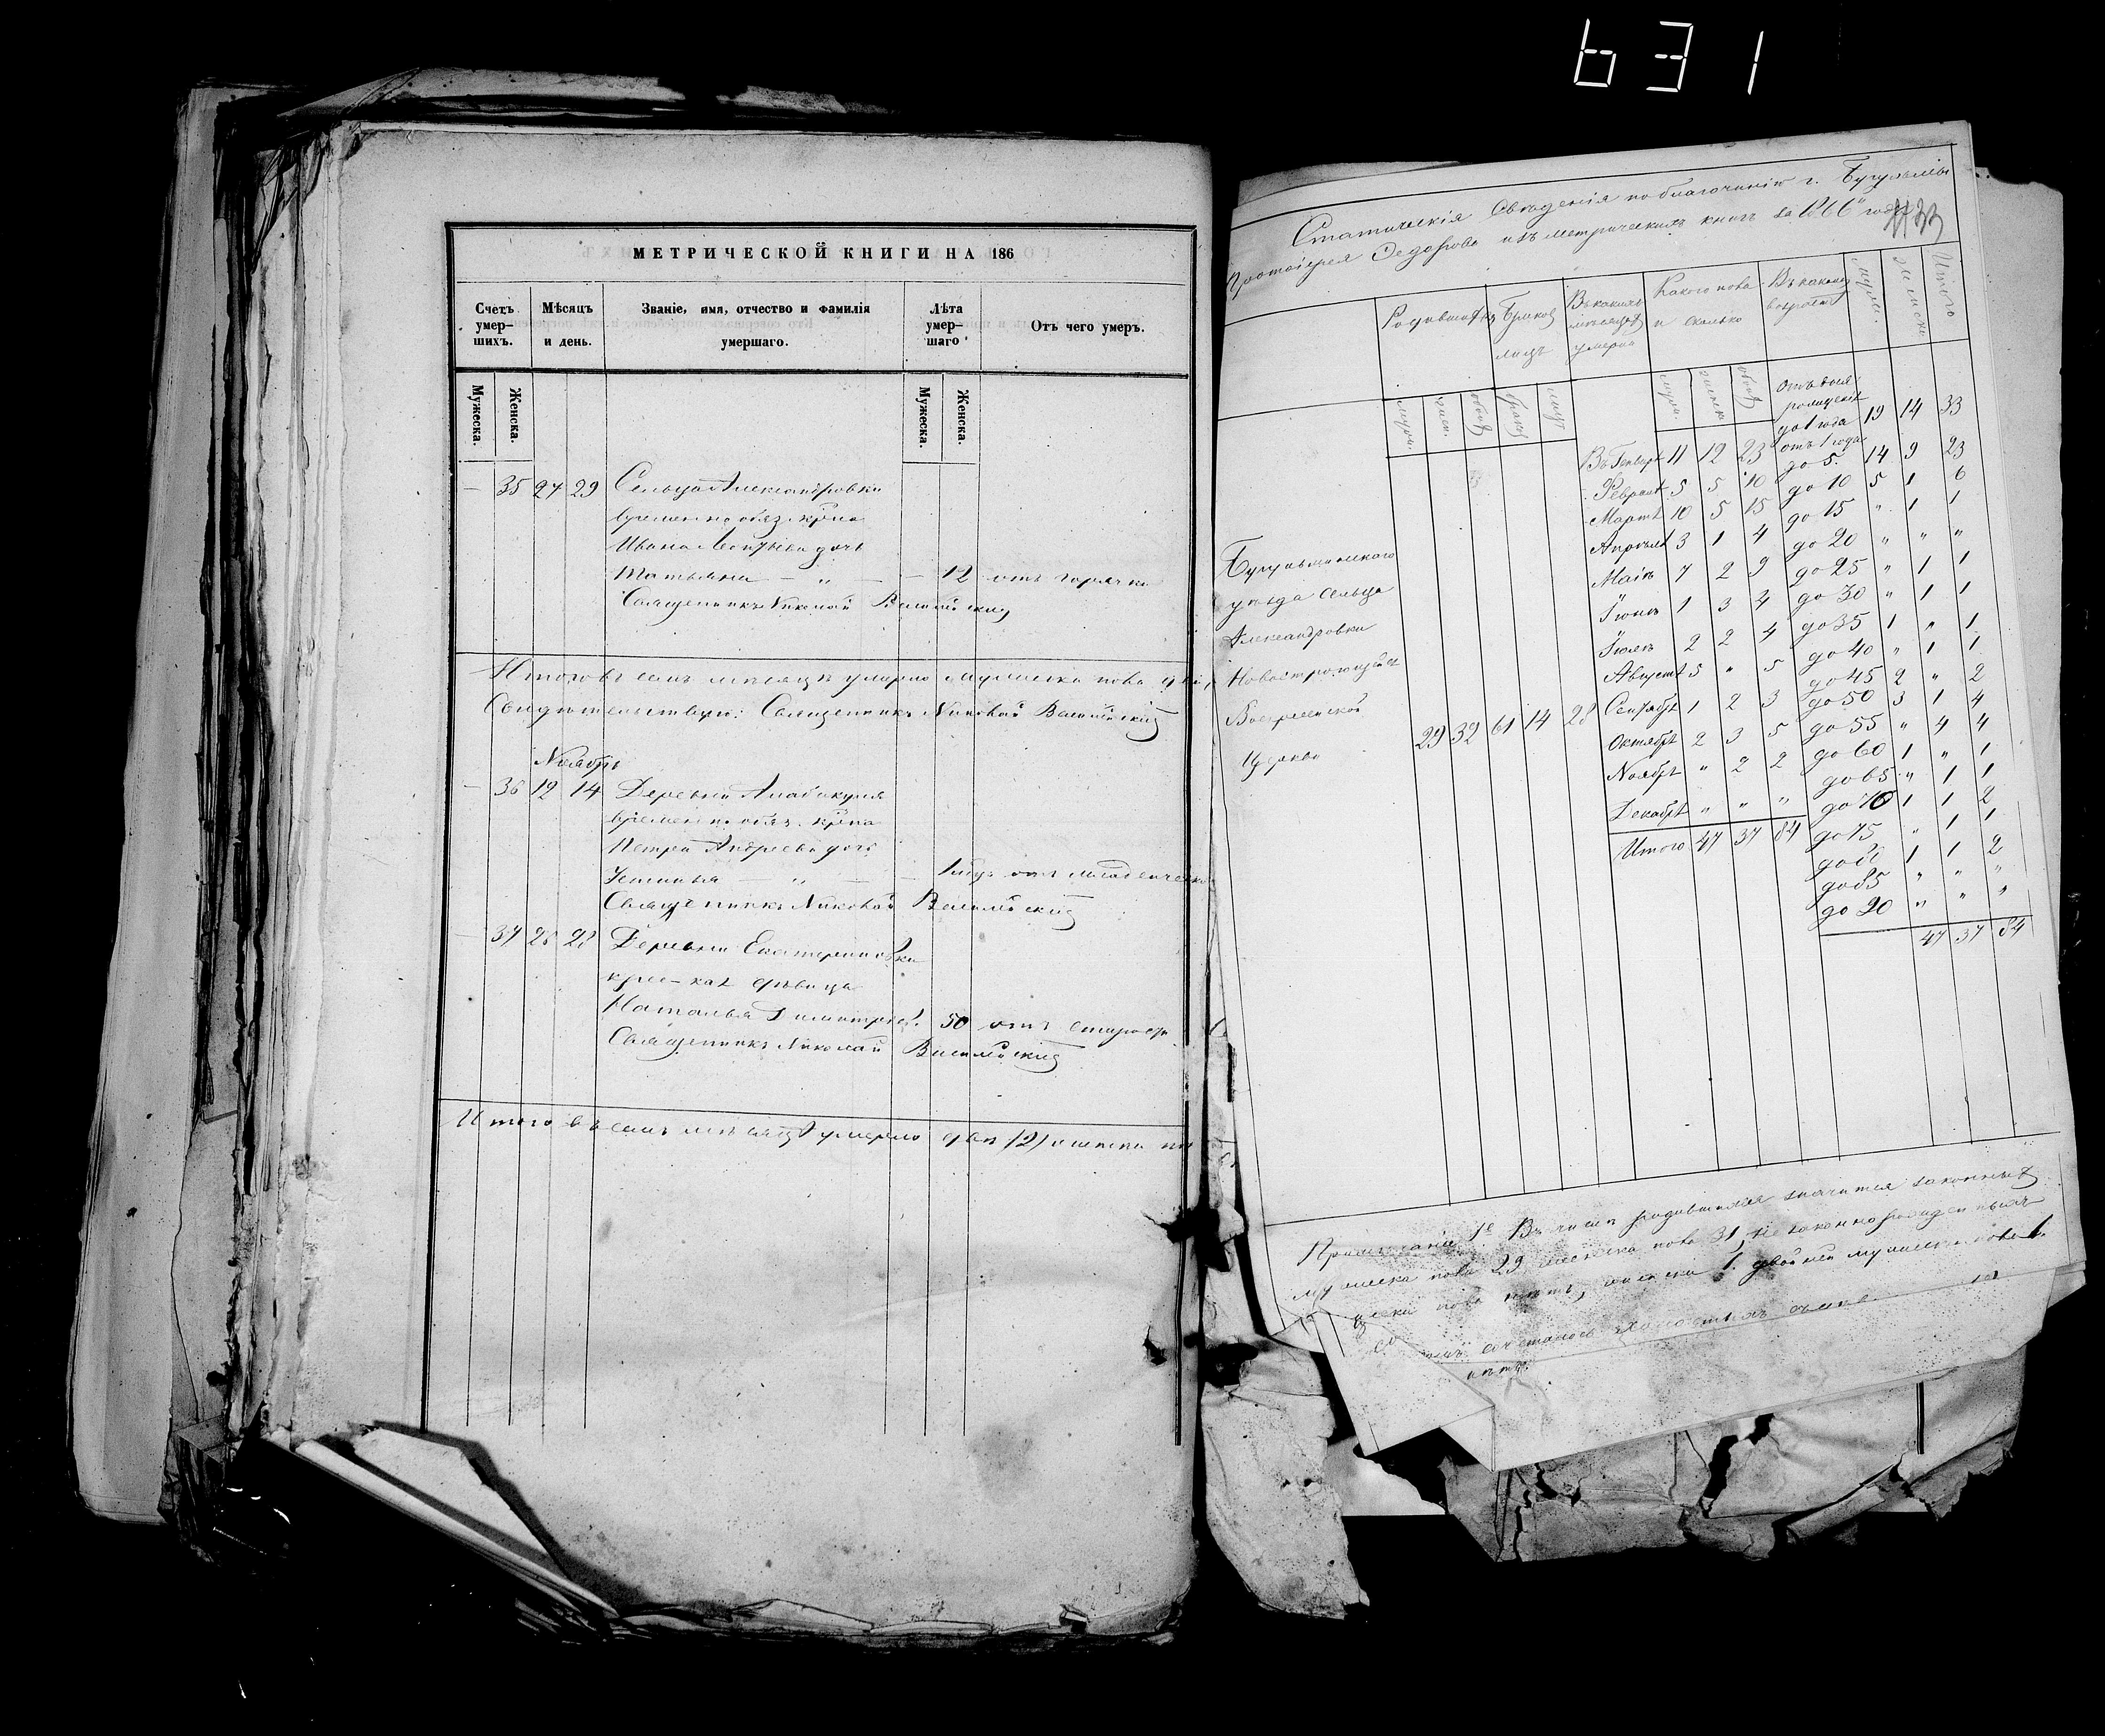 631
МЕТРИЧЕСКОЙ КНИГИ НА 186
Счетъ умер-шихъ.
Мѣсяцъ и день.
Званіе, имя, отчество и фамилія умершаго.
Лѣта умер-шаго
Отъ чего умеръ.
Мужеска. Женска.
Мужеска. Женска.
— 35 27 29 Сельца Александровки
временно обяз. крна
Ивана Леонтьева дочь
Татьяна — „ — — 12 отъ горячки
Священникъ Николай
Итого въ семъ месяцѣ умерло мужеска пола
Свидѣтельствую: Священникъ Николай
Ноябрь
— 36 12 14 Деревни
временно обяз. крна
Петра Андреева дочь
Устинья — „ — —
Священникъ Николай
— 37 26 28 Деревни Екатериновки
крес-кая дѣвица
Наталья Димитріева 50 отъ старости
Священникъ Николай
Итого въ семъ месяцѣ умерло двѣ (2) женска
Статическія Сведенія по благочинію г. Бугульмы
Протоіерея Федорова изъ метрическихъ книгъ за 1866 годъ
Родившихся
Браков
лицъ
Въ какихъ месяцахъ умерли
Какого пола и сколько
Въ какомъ возрастѣ
муж.
женск.
Итого
муж. женск. обоего брак. лицъ
муж. женск. обоего
Бугульминского
уѣзда сельца
Александровки
Новостроющейся
Воскресенской
церкви
29 32 61 14 28
Въ Генварѣ 11 12 23
Февралѣ 5 5 10
Мартѣ 10 5 15
Апрѣлѣ 3 1 4
Маіѣ 7 2 9
Іюнѣ 1 3 4
Іюлѣ 2 2 4
Августѣ 5 „ 5
Сентябрѣ 1 2 3
Октябрѣ 2 3 5
Ноябрѣ „ 2 2
Декабрѣ „ „ „
Итого 47 37 84
Отъ дня рожденія до 1 года 19 14 33
отъ 1 года до 5. 14 9 23
до 10 5 1 6
до 15 „ 1 1
до 20 „ „ „
до 25 „ 1 1
до 30 „ 1 1
до 35 1 „ 1
до 40 „ 1 1
до 45 2 „ 2
до 50 3 1 4
до 55 „ 4 4
до 60 1 „ 1
до 65 „ 1 1
до 70 1 1 2
до 75 „ 1 1
до 80 1 1 2
до 85 „ „ „
до 90 „ „ „
47 37 84
Примѣчаніе 1е Въ числѣ родившихся значится законныхъ
мужеска пола 29 женска пола 31, не законнорожденныхъ
пола нѣтъ, женска 1. двойней мужеска пола 1.
нѣтъ.